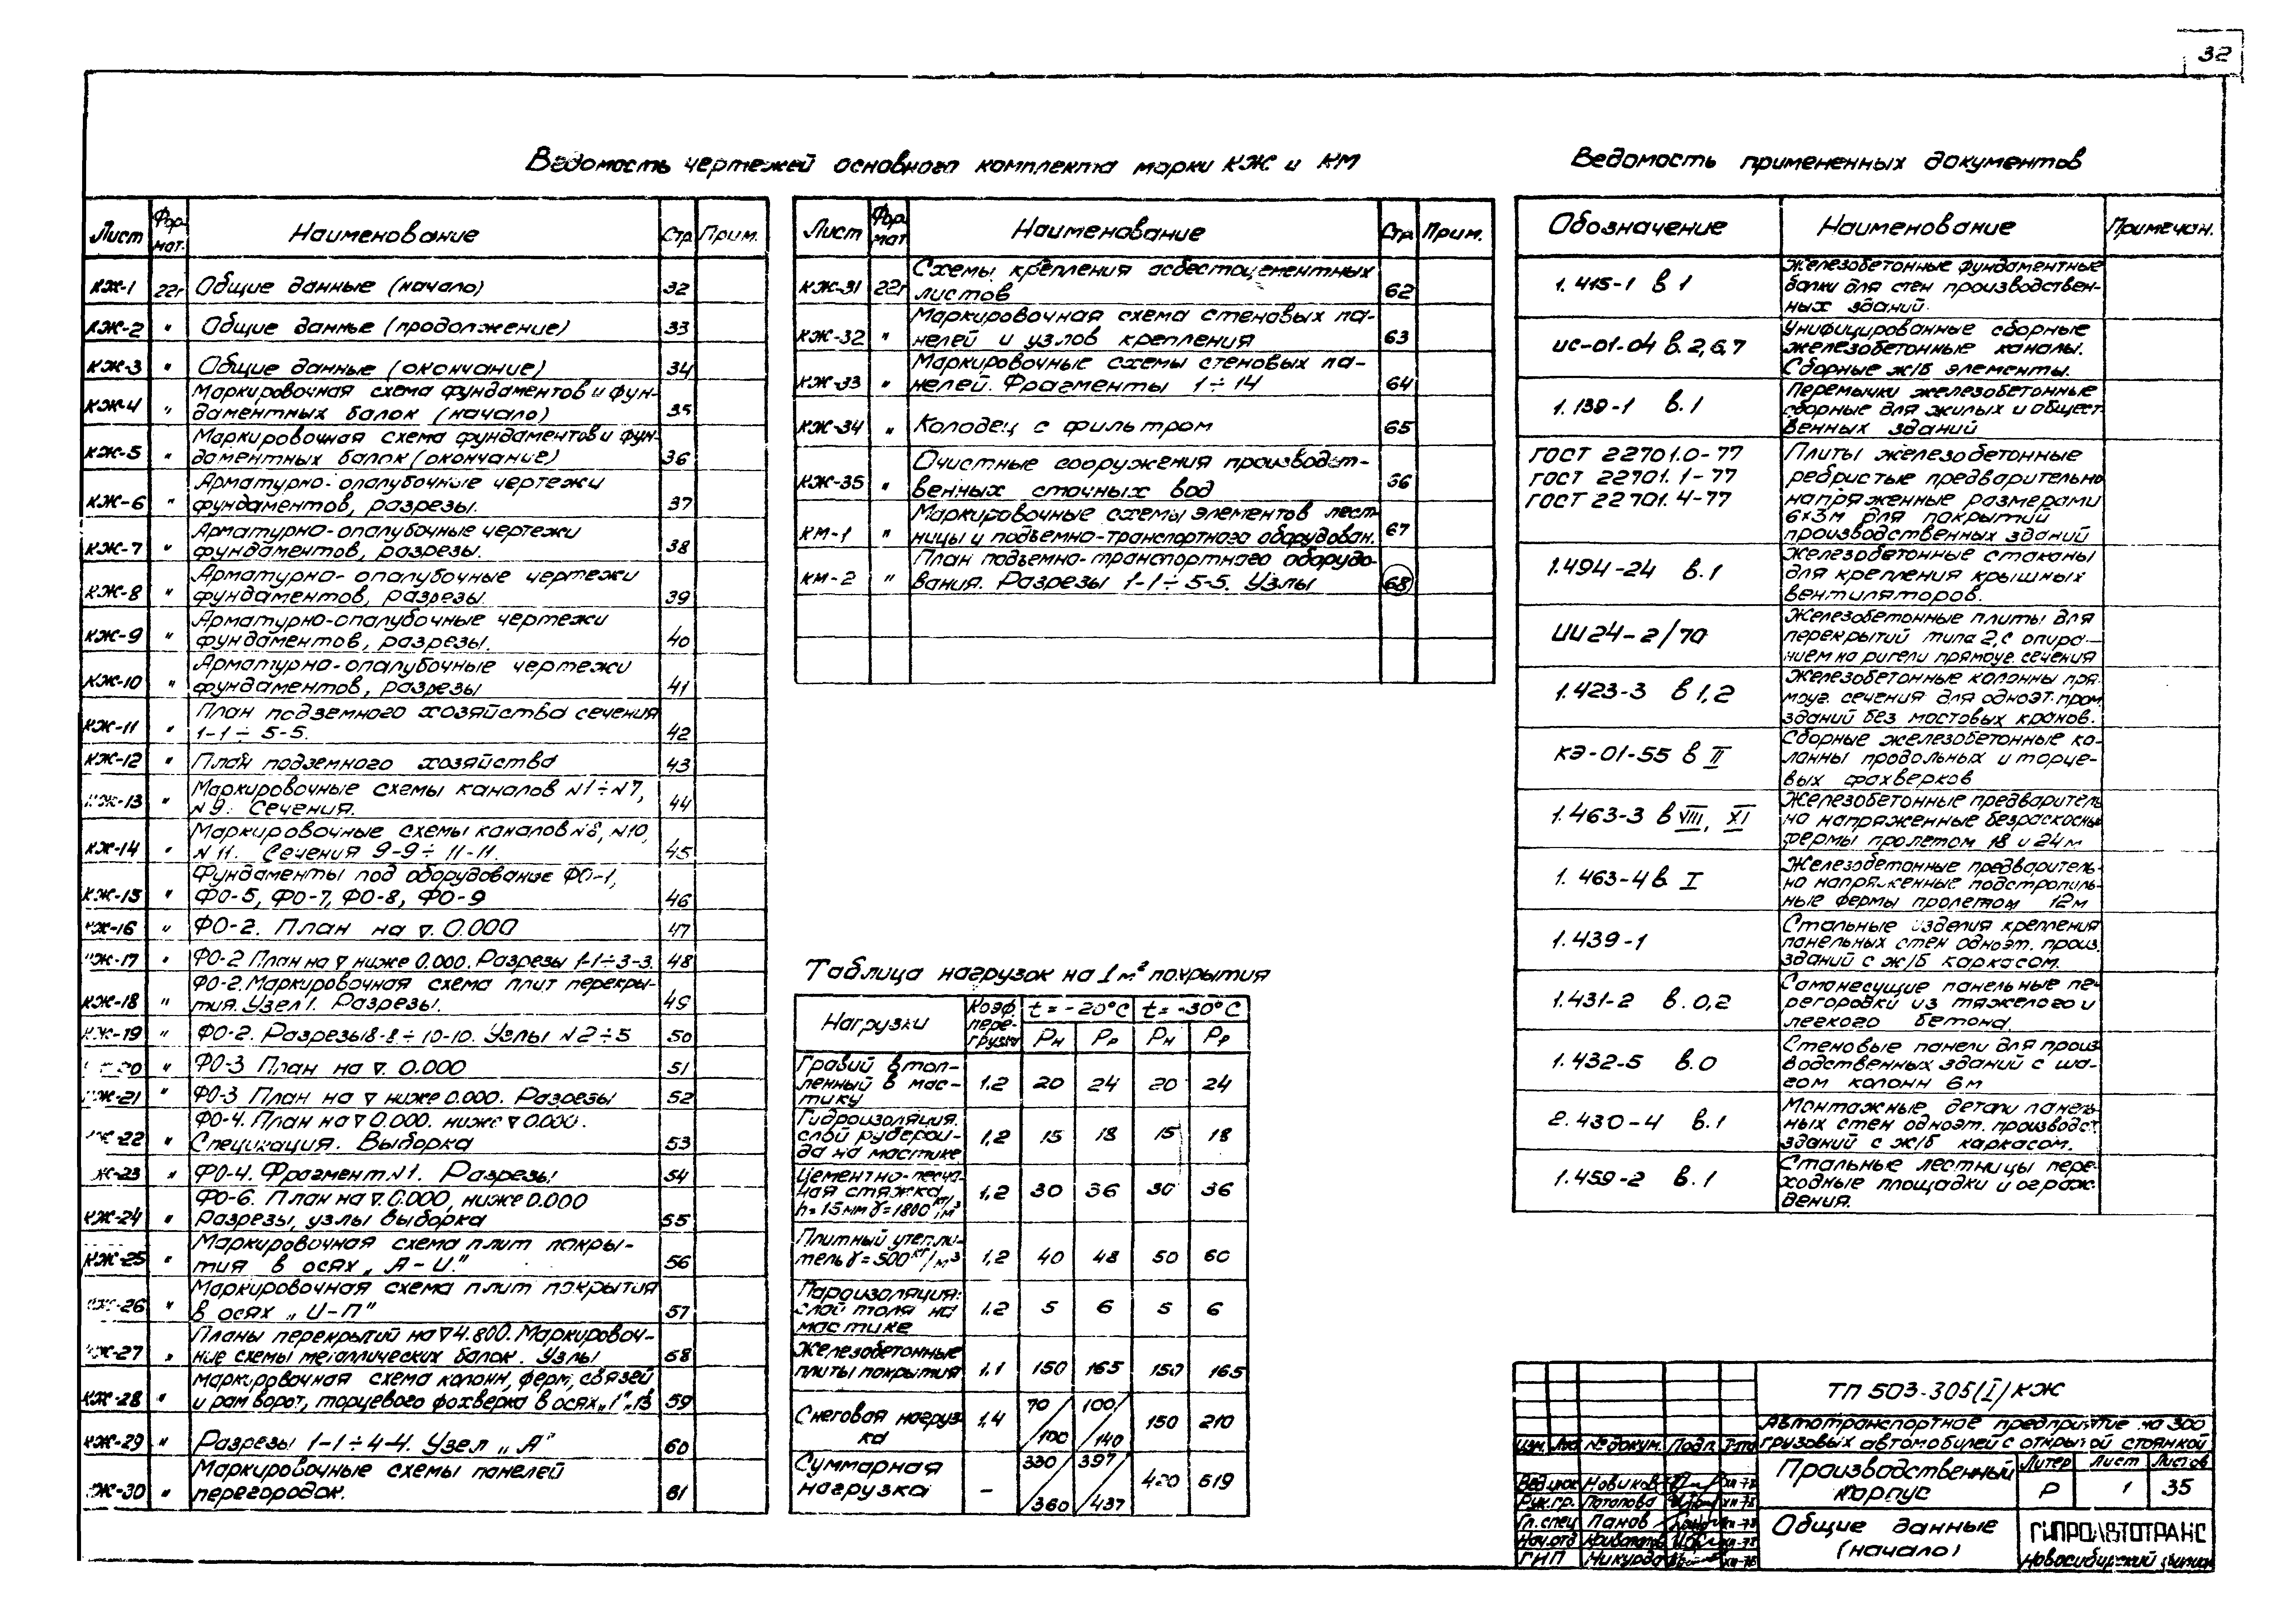 32
Ведомость чертежей основного комплекта марки КЖ и КМ
Лист Фор-мат. Наименование Стр. Прим.
КЖ-1 22г Общие данные (начало) 32
КЖ-2 " Общие данные (продолжение) 33
КЖ-3 " Общие данные (окончание) 34
Маркировочная схема фундаментов и фун-
КЖ-4 " даментных балок (начало) 35
Маркировочная схема фундаментов и фун-
КЖ-5 " даментных балок (окончание) 36
Арматурно-опалубочные чертежи
КЖ-6 " фундаментов, разрезы. 37
Арматурно-опалубочные чертежи
КЖ-7 " фундаментов, разрезы. 38
Арматурно-опалубочные чертежи
КЖ-8 " фундаментов, разрезы. 39
Арматурно-опалубочные чертежи
КЖ-9 " фундаментов, разрезы. 40
Арматурно-опалубочные чертежи
КЖ-10 " фундаментов, разрезы 41
План подземного хозяйства сечения
КЖ-11 " 1-1 ÷ 5-5. 42
КЖ-12 " План подземного хозяйства 43
Маркировочные схемы каналов N1÷N7,
КЖ-13 " N9. Сечения. 44
Маркировочные схемы каналов N8, N10,
КЖ-14 " N11. Сечения 9-9 ÷ 11-11. 45
Фундаменты под оборудование ФО-1,
КЖ-15 " ФО-5, ФО-7, ФО-8, ФО-9 46
КЖ-16 " ФО-2. План на ∇. 0.000 47
КЖ-17 " ФО-2 План на ∇ ниже 0.000. Разрезы 1-1÷3-3. 48
ФО-2. Маркировочная схема плит перекры-
КЖ-18 " тия. Узел 1. Разрезы. 49
КЖ-19 " ФО-2. Разрезы 8-8 ÷ 10-10. Узлы N2÷5 50
КЖ-20 " ФО-3 План на ∇. 0.000 51
КЖ-21 " ФО-3 План на ∇ ниже 0.000. Разрезы 52
ФО-4. План на ∇ 0.000. ниже ∇ 0.000.
КЖ-22 " Специкация. Выборка 53
КЖ-23 " ФО-4. Фрагмент N1. Разрезы 54
ФО-6. План на ∇. 0.000, ниже 0.000
КЖ-24 " Разрезы, узлы выборка 55
Маркировочная схема плит покры-
КЖ-25 " тия в осях „А-И." 56
Маркировочная схема плит покрытия
КЖ-26 " в осях „И-П" 57
Планы перекрытий на ∇ 4.800. Маркировоч-
КЖ-27 " ные схемы металлических балок. Узлы 68
Маркировочная схема колонн, ферм, связей
КЖ-28 " и рам ворот, торцевого фахверка в осях „1", 13 59
КЖ-29 " Разрезы 1-1 ÷ 4-4. Узел „А" 60
Маркировочные схемы панелей
КЖ-30 " перегородок. 61
Лист Фор-мат Наименование Стр. Прим.
Схемы крепления асбестоцементных
КЖ-31 22г листов 62
Маркировочная схема стеновых па-
КЖ-32 " нелей и узлов крепления 63
Маркировочные схемы стеновых па-
КЖ-33 " нелей. Фрагменты 1 ÷ 14 64
КЖ-34 " Колодец с фильтром 65
Очистные сооружения производст-
КЖ-35 " венных сточных вод 36
Маркировочные схемы элементов лест-
КМ-1 " ницы и подъемно-транспортного оборудован. 67
План подъемно-транспортного оборудо-
КМ-2 " вания. Разрезы 1-1 ÷ 5-5. Узлы 68
Таблица нагрузок на 1 м² покрытия
Нагрузки Коэф. пере-грузки t = -20°С t = -30°С
Рн Рр Рн Рр
Гравий втоп-
ленный в мас- 1.2 20 24 20 24
тику
Гидроизоляция.
слой руберои- 1,2 15 18 15 18
да на мастике
Цементно-песча-
ная стяжка 1,2 30 36 30 36
h=15мм γ=1800 кг/м³
Плитный утепли-
тель γ=500 кг/м³ 1,2 40 48 50 60
Пароизоляция:
слой толя на 1.2 5 6 5 6
мастике
Железобетонные
плиты покрытия 1.1 150 165 150 165
Снеговая нагруз-
ка 1.4 70/100 100/140 150 210
Суммарная
нагрузка - 330/360 397/437 420 519
Ведомость примененных документов
Обозначение Наименование Примечан.
Железобетонные фундаментные
1.415-1 в 1 балки для стен производствен-
ных зданий.
Унифицированные сборные
ИС-01-04 в. 2,6,7 железобетонные каналы.
Сборные ж/б элементы.
Перемычки железобетонные
1.139-1 в.1 сборные для жилых и общест-
венных зданий
ГОСТ 22701.0-77 Плиты железобетонные
ГОСТ 22701.1-77 ребристые предварительно
ГОСТ 22701.4-77 напряженные размерами
6×3м для покрытий
производственных зданий
Железобетонные стаканы
1.494-24 в.1 для крепления крышных
вентиляторов.
Железобетонные плиты для
ИИ24-2/70 перекрытий типа 2, с опира-
нием на ригели прямоуг. сечения
Железобетонные колонны пря-
1.423-3 в 1,2 моуг. сечения для одноэт. пром.
зданий без мостовых кранов.
Сборные железобетонные ко-
КЭ-01-55 в II лонны продольных и торце-
вых фахверков
Железобетонные предваритель-
1.463-3 в VIII, XI но напряженные безраскосные
фермы пролетом 18 и 24м
Железобетонные предваритель-
1.463-4 в. I но напряженные подстропиль-
ные фермы пролетом 12м
Стальные изделия крепления
1.439-1 панельных стен одноэт. произ.
зданий с ж/б каркасом.
Самонесущие панельные пе-
1.431-2 в. 0,2 регородки из тяжелого и
легкого бетона.
Стеновые панели для произ-
1.432-5 в.0 водственных зданий с ша-
гом колонн 6м
Монтажные детали панель-
2.430-4 в.1 ных стен одноэт. производст.
зданий с ж/б каркасом.
Стальные лестницы пере-
1.459-2 в.1 ходные площадки и ограж-
дения.
ТП 503-305(I) КЖ
Автотранспортное предприятие на 300
Изм. Лист № докум. Подп. грузовых автомобилей с открытой стоянкой
Производственный корпус Литер Лист Листов
Р 1 35
Новиков XII-78
Рук. гр. Потапова XII-78
Гл. спец Панов XII-78
Нач. отд XII-78
ГИП Никурда XII-78
Общие данные
(начало)
ГИПРОАВТОТРАНС
Новосибирский филиал